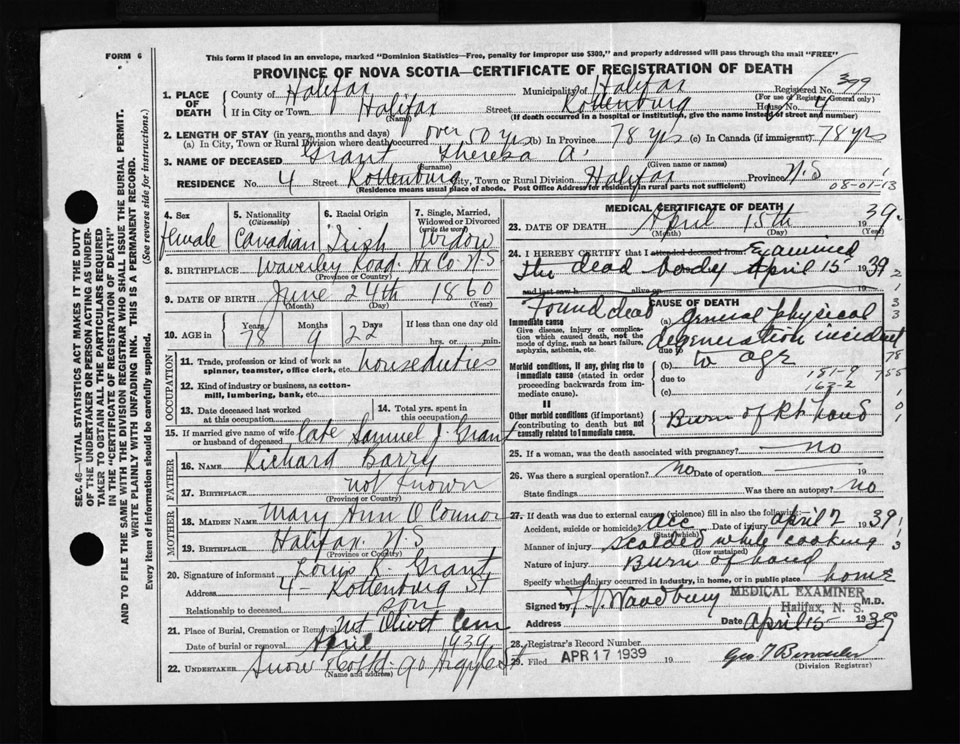 FORM 6
This form if placed in an envelope, marked "Dominion Statistics—Free, penalty for improper use $300," and properly addressed will pass through the mail "FREE"
PROVINCE OF NOVA SCOTIA—CERTIFICATE OF REGISTRATION OF DEATH
SEC. 46—VITAL STATISTICS ACT MAKES IT THE DUTY
OF THE UNDERTAKER OR PERSON ACTING AS UNDER-
TAKER TO OBTAIN ALL THE PARTICULARS REQUIRED
IN THE "CERTIFICATE OF REGISTRATION OF DEATH"
AND TO FILE THE SAME WITH THE DIVISION REGISTRAR WHO SHALL ISSUE THE BURIAL PERMIT.
WRITE PLAINLY WITH UNFADING INK. THIS IS A PERMANENT RECORD.
Every item of information should be carefully supplied. (See reverse side for instructions.)
1. PLACE OF DEATH
County of Halifax Municipality of Halifax Registered No. 399
(For use of Registrar General only)
If in City or Town Halifax Street Rottenburg House No. 4
(Name) (If death occurred in a hospital or institution, give the name instead of street and number)
2. LENGTH OF STAY (in years, months and days)
(a) In City, Town or Rural Division where death occurred over 50 yrs (b) In Province 78 yrs (c) In Canada (if immigrant) 78 yrs
3. NAME OF DECEASED Grant Theresa A.
(Surname) (Given name or names)
RESIDENCE No. 4 Street Rottenburg City, Town or Rural Division Halifax Province N.S
(Residence means usual place of abode. Post Office Address for residents in rural parts not sufficient) 08-01-13
4. Sex female
5. Nationality (Citizenship) Canadian
6. Racial Origin Irish
7. Single, Married, Widowed or Divorced (write the word) Widow
8. BIRTHPLACE Waverley Road. Hx Co. N.S
(Province or Country)
9. DATE OF BIRTH June 24th 1860
(Month) (Day) (Year)
10. AGE in Years 78 Months 9 Days 22 If less than one day old
hrs. or min.
OCCUPATION
11. Trade, profession or kind of work as spinner, teamster, office clerk, etc. houseduties
12. Kind of industry or business, as cotton-mill, lumbering, bank, etc.
13. Date deceased last worked at this occupation
14. Total yrs. spent in this occupation
15. If married give name of wife or husband of deceased late Samuel J. Grant
FATHER
16. NAME Richard Barry
17. BIRTHPLACE not known
(Province or Country)
MOTHER
18. MAIDEN NAME Mary Ann O'Connor
19. BIRTHPLACE Halifax. N.S
(Province or Country)
20. Signature of informant Louis R. Grant
Address 4- Rottenburg St
Relationship to deceased son
21. Place of Burial, Cremation or Removal Mt Olivet Cem
Date of burial or removal April 1939
22. UNDERTAKER Snow & Co Ltd. 90 Argyle St
(Name and address)
MEDICAL CERTIFICATE OF DEATH
23. DATE OF DEATH April 15th 1939
(Month) (Day) (Year)
24. I HEREBY CERTIFY that I attended deceased from Examined
the dead body April 15 1939
and last saw h alive on
Found dead
CAUSE OF DEATH
Immediate cause
Give disease, injury or complication which caused death, not the mode of dying, such as heart failure, asphyxia, asthenia, etc.
(a) General physical
degeneration incident
due to
(b) to age
Morbid conditions, if any, giving rise to immediate cause (stated in order proceeding backwards from immediate cause)
due to
(c)
181-9
163-2
78
755
II
Other morbid conditions (if important) contributing to death but not causally related to immediate cause.
Burn of Rt. hand
25. If a woman, was the death associated with pregnancy? no
26. Was there a surgical operation? No Date of operation
State findings Was there an autopsy? no
27. If death was due to external causes (violence) fill in also the following:—
Accident, suicide or homicide? acc Date of injury April 2 1939
(State which)
Manner of injury scalded while cooking
(How sustained)
Nature of injury Burn of hand
Specify whether injury occurred in industry, in home, or in public place home
Signed by Woodbury M.D.
MEDICAL EXAMINER
Halifax, N. S.
Address Date April 15 1939
28. Registrar's Record Number
29. Filed APR 17 1939 19
(Division Registrar)